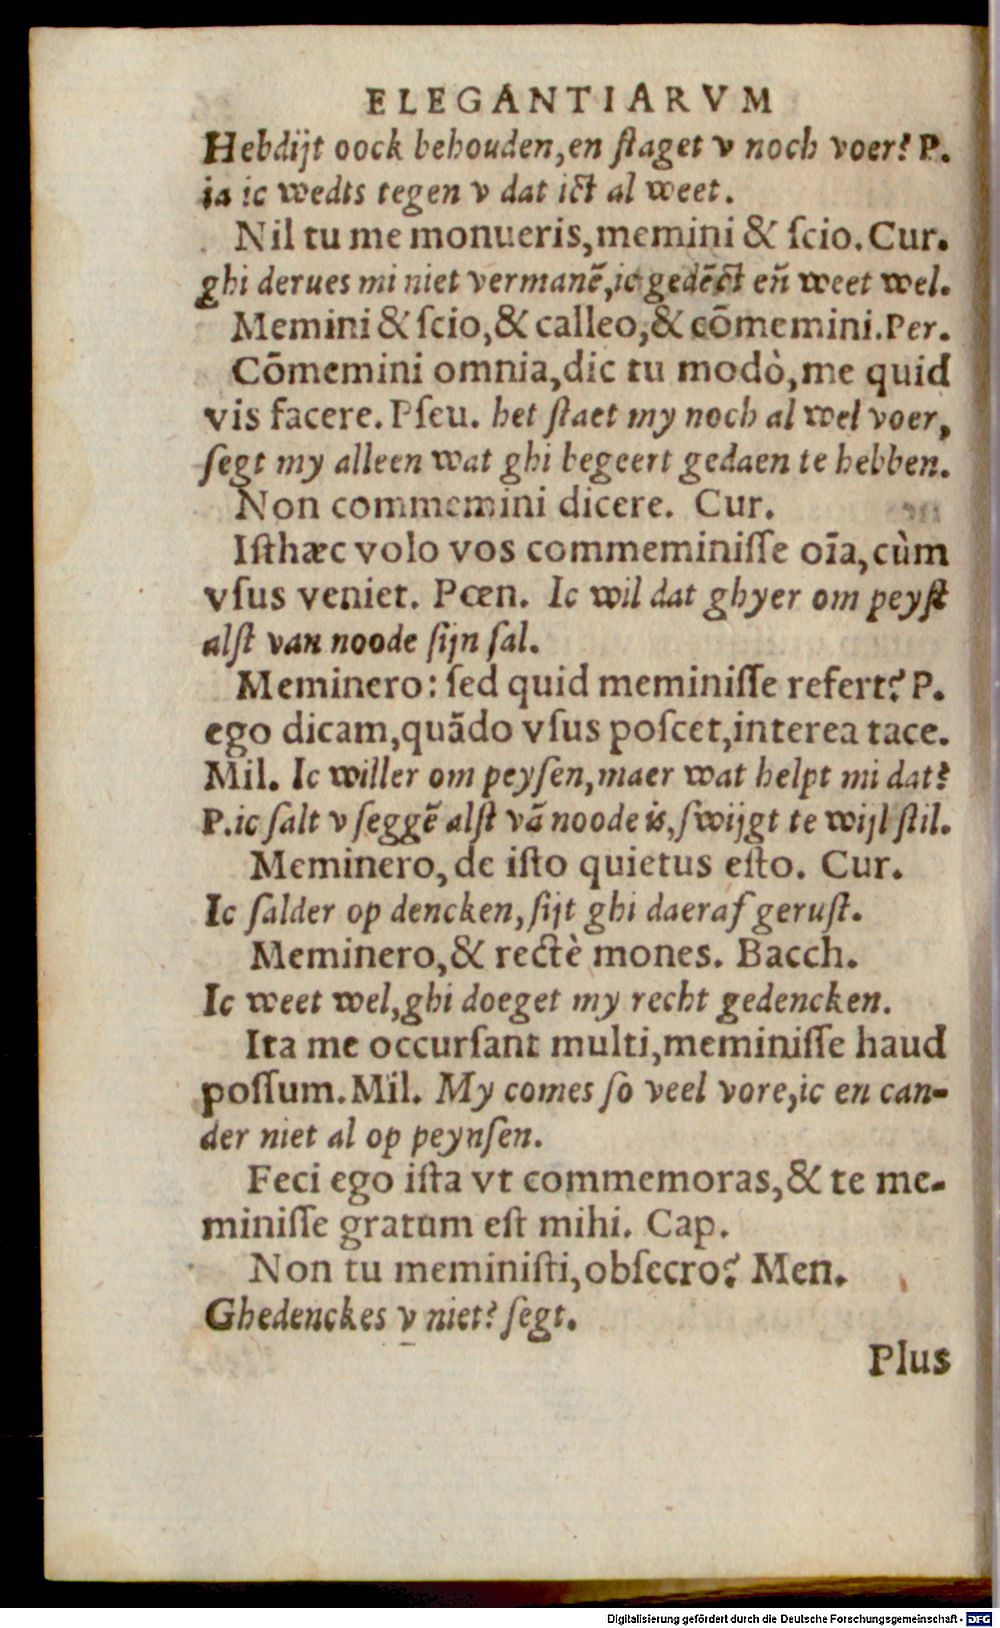 ELEGANTIARVM
Hebdijt oock behouden,en ſtaget v noch voer? P.
ia ic wedts tegen v dat ict al weet.
Nil tu me monueris,memini & ſcio. Cur.
ghi derues mi niet vermanē,ic gedēct en̄ weet wel.
Memini & ſcio,& calleo,& cōmemini. Per.
Cōmemini omnia,dic tu modò,me quid
vis facere. Pſeu. het ſtaet my noch al wel voer,
ſegt my alleen wat ghi begeert gedaen te hebben.
Non commemini dicere. Cur.
Iſthæc volo vos commeminiſſe oīa,cùm
vſus veniet. Pœn. Ic wil dat ghyer om peyſt
alſt van noode ſijn ſal.
Meminero: ſed quid meminiſſe refert? P.
ego dicam,quādo vſus poſcet,interea tace.
Mil. Ic willer om peyſen,maer wat helpt mi dat?
P. ic ſalt v ſeggē alſt vā noode is,ſwijgt te wijl ſtil.
Meminero, de iſto quietus eſto. Cur.
Ic ſalder op dencken, ſijt ghi daeraf geruſt.
Meminero,& rectè mones. Bacch.
Ic weet wel,ghi doeget my recht gedencken.
Ita me occurſant multi,meminiſſe haud
poſſum. Mil. My comes ſo veel vore,ic en can-
der niet al op peynſen.
Feci ego iſta vt commemoras,& te me-
miniſſe gratum eſt mihi. Cap.
Non tu meminiſti,obſecro? Men.
Ghedenckes v niet? ſegt.
Plus
Digitalisierung gefördert durch die Deutsche Forschungsgemeinschaft - DFG